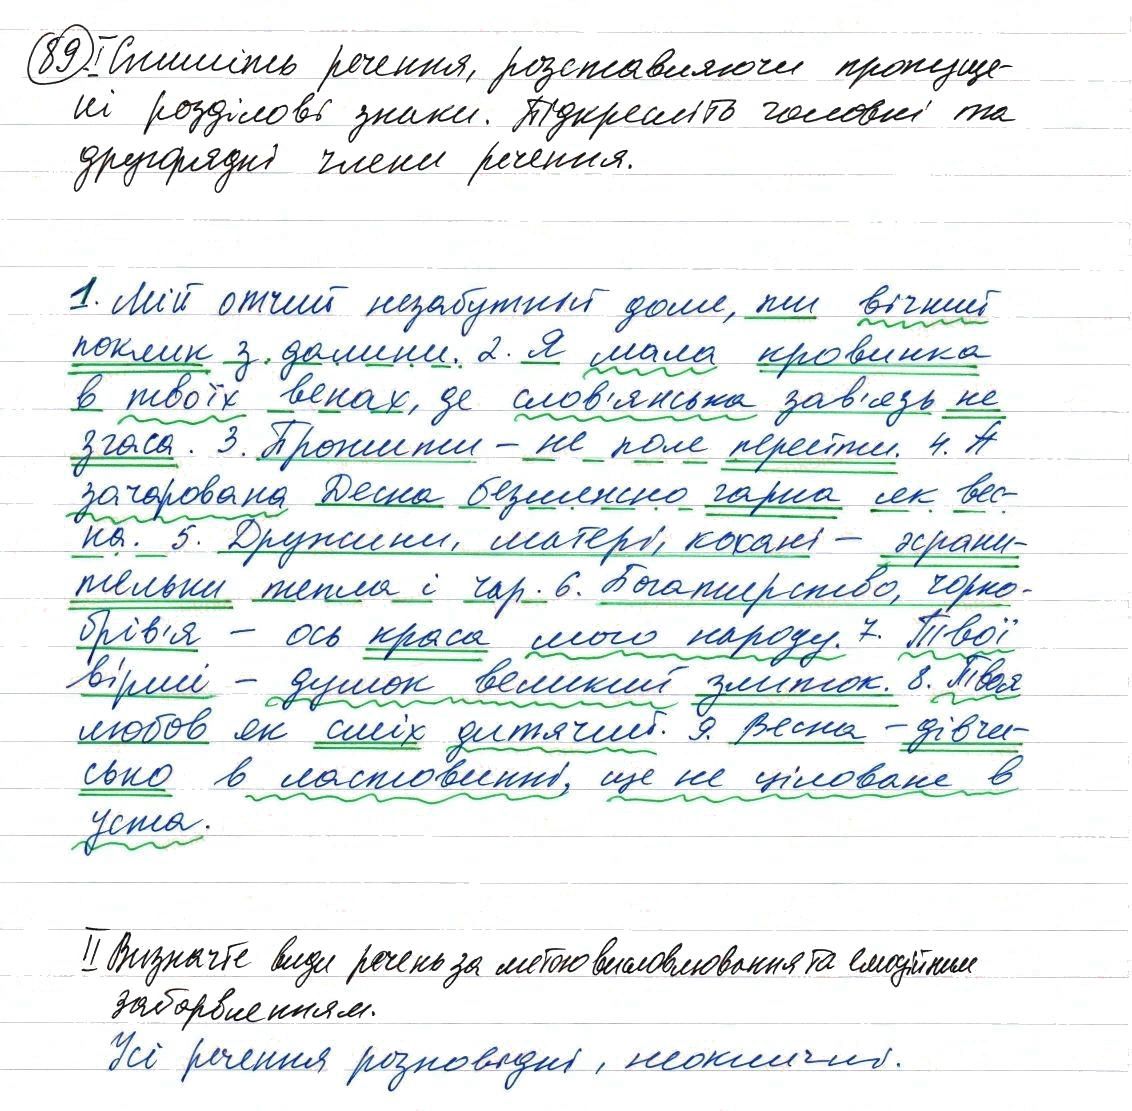 89 I Спишіть речення, розставляючи пропуще-
ні розділові знаки. Підкресліть головні та
другорядні члени речення.
1. Мій отчий незабутній доме, ти вічний
поклик з долини. 2. Я мала кровинка
в твоїх венах, де слов'янська зав'язь не
згаса. 3. Прожити – не поле перейти. 4. А
зачарована Десна безмежно гарна як вес-
на. 5. Дружини, матері, кохані – храни-
тельки тепла і чар. 6. Богатирство, чорно-
брів'я – ось краса мого народу. 7. Твої
вірші – думок великий злиток. 8. Твоя
любов як сміх дитячий. 9. Весна – дівчи-
сько в ластовинні, ще не ціловане в
уста.
II Визначте види речень за метою висловлювання та емоційним
забарвленням.
Усі речення розповідні, неокличні.